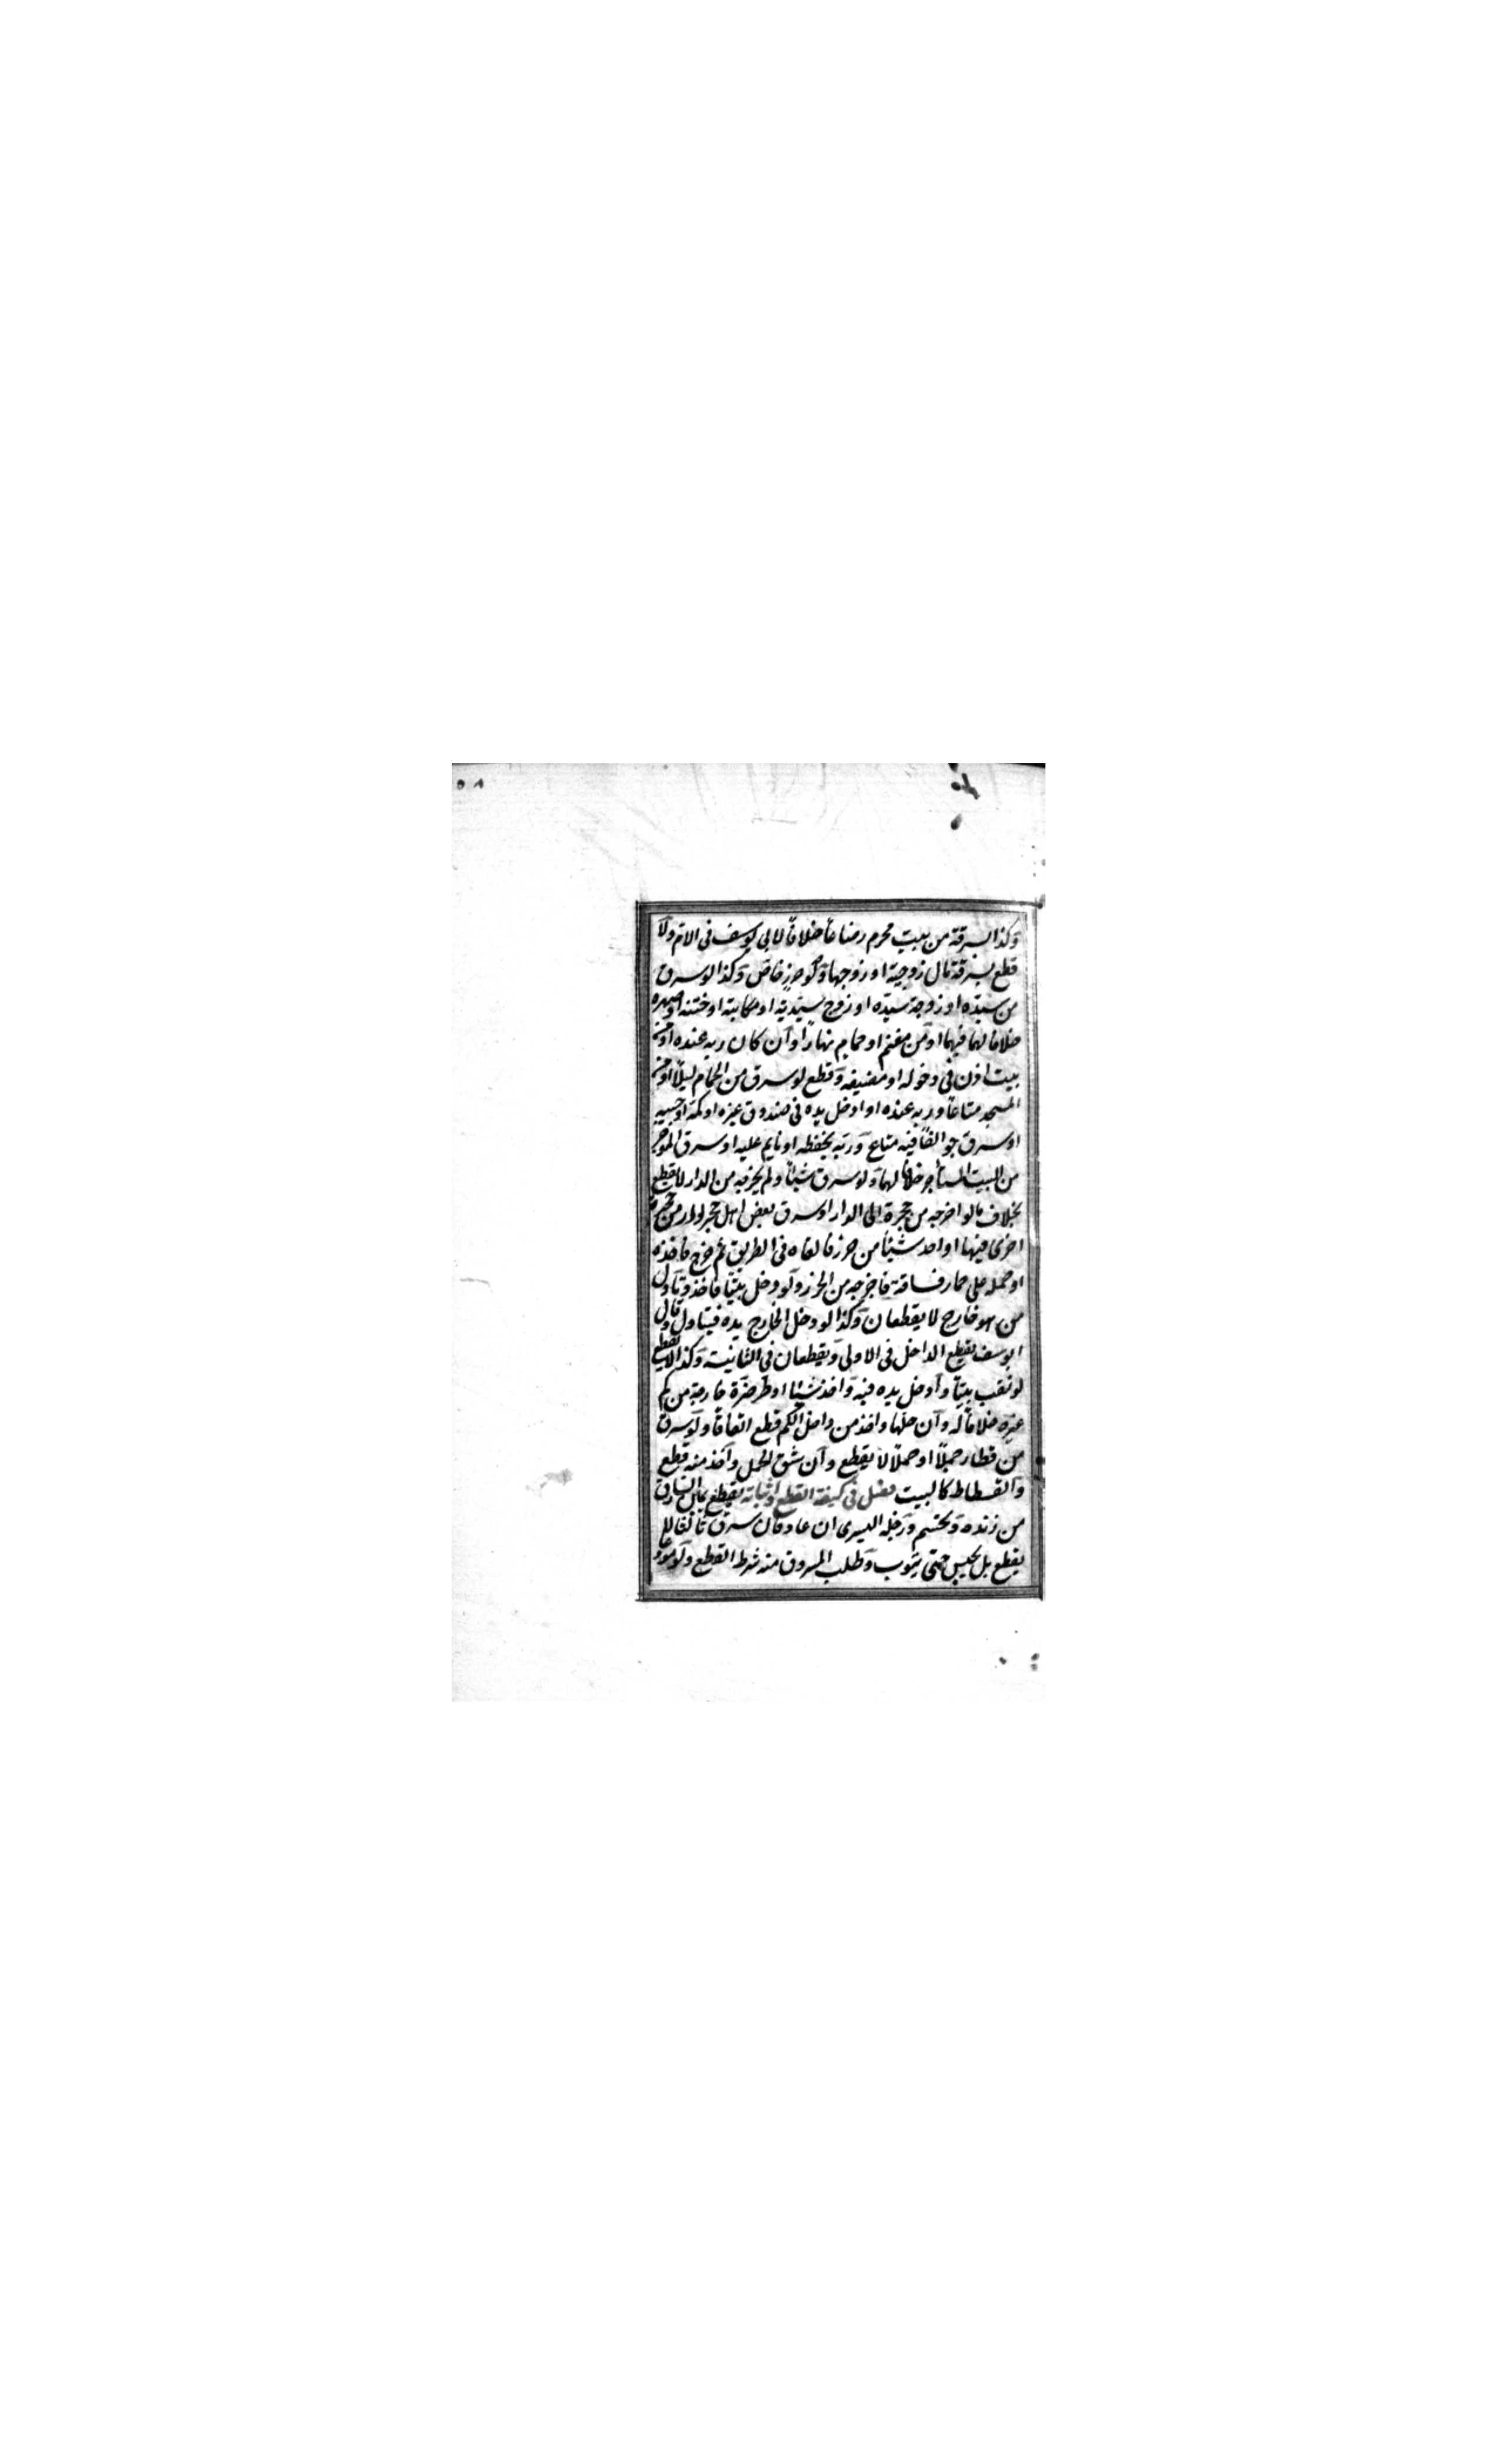 ٥٨
وكذا السرقة من بيت محرم رضاعا خلافا لابى يوسف فى الام ولا
قطع بسرقة مال زوجته او زوجها ولو من حرز خاص وكذا لو سرق
من سيده او زوجة سيده او زوج سيدته او مكاتبه او ختنه او صهره
خلافا لهما فيهما او من مغنم او حمام نهارا وان كان ربه عنده او من
بيت اذن فى دخوله او مضيفه وقطع لو سرق من الحمام ليلا او من
المسجد متاعا وربه عنده او ادخل يده فى صندوق غيره او كمه او جيبه
او سرق جوالقا فيه متاع وربه يحفظه او نايم عليه او سرق الموجر
من البيت المستأجر خلافا لهما ولو سرق شيئا ولم يخرجه من الدار لا يقطع
بخلاف ما لو اخرجه من حجرة الى الدار او سرق بعض اهل حجر الدار من حجرة
اخرى فيها او اخذ شيئا من حرز فالقاه فى الطريق ثم خرج فاخذه
او حمله على حمار فساقه فاخرجه من الحرز ولو دخل بيتا فاخذ وناول
من هو خارج لا يقطعان وكذا لو دخل الخارج يده فيتناول وقال
ابو يوسف يقطع الداخل فى الاولى ويقطعان فى الثانية وكذا لا يقطع
لو نقب بيتا وادخل يده فيه واخذ شيئا او طر صرة خارجة من كم
غيره خلافا له وان حلها واخذ من داخل الكم قطع اتفاقا ولو سرق
من قطار جملا او حملا لا يقطع وان شق الحمل واخذ منه قطع
والفسطاط كالبيت فصل فى كيفية القطع واثباته يقطع يمين السارق
من زنده وتحسم ورجله اليسرى ان عاد فان سرق ثالثا لا
يقطع بل يحبس حتى يتوب وطلب المسروق منه شرط القطع ولو مودعا